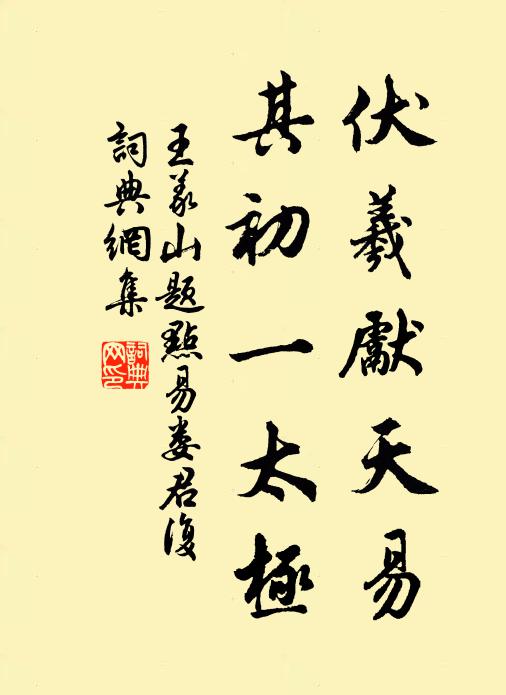 伏羲獻天易
其初一太極
王義山題點易婁君復
詞典網集
詞典網印